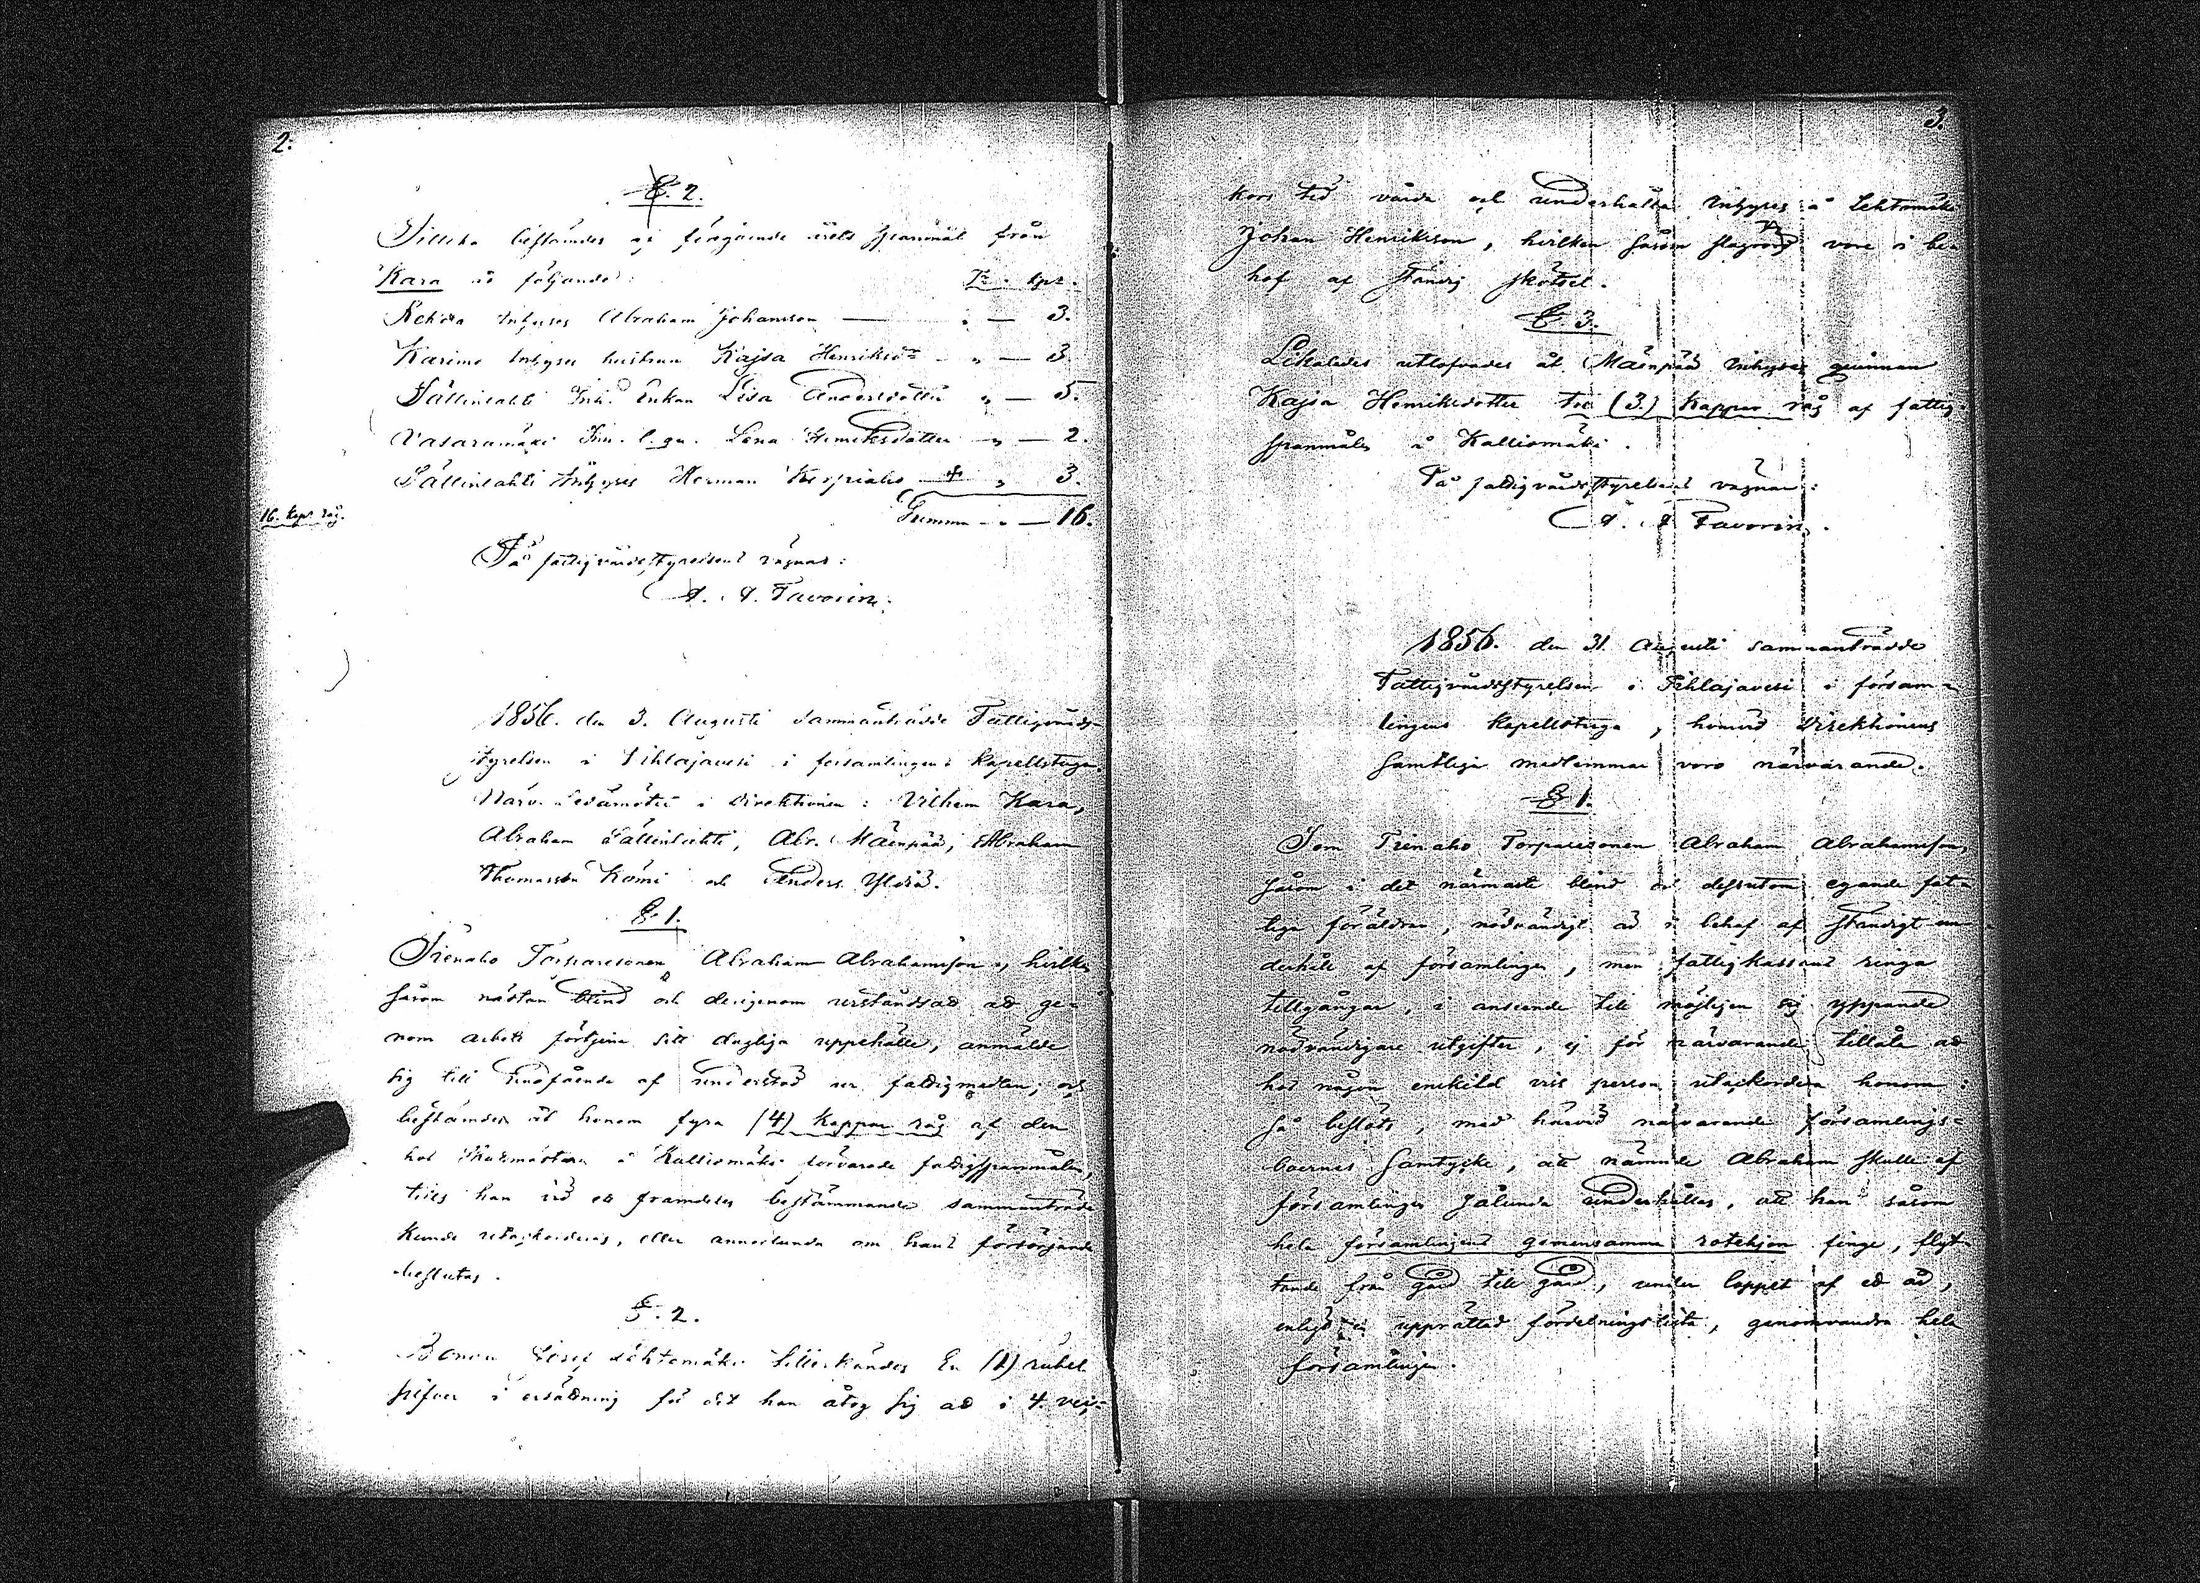 2.
§. 2.
Tillika bestämdes af föregående årets spanmål från
Kara åt följande: Tr. kpr.
Inhyses Abraham Johansson — „ — 3.
Inhyses hustrun Kajsa Henriksdr — „ — 3.
Sällinlahti Inh. Enkan Lisa Andersdotter „ — 5.
Vasaramäki Inh. Lena Henriksdotter — „ — 2.
Sällinlahti Inhyses Herman — „ 3.
16. kapr råg. Summa — „ — 16.
På fattigvårdsstyrelsens vägnar:
A. A. Favorin.
1856. den 3. Augusti sammanträdde Fattigvårds-
styrelsen i Pihlajavesi i församlingens Kapellstuga.
Närv. Ledamöter i Direktionen: Vilhem Kara,
Abraham Sällinlahti, Abr. Mäenpää, Abraham
Thomasson Kömi och Anders Yldiä.
§. 1.
Torparesonen Abraham Abrahamsson, hvilken
såsom nästan blind och derigenom urståndsatt att ge-
nom arbete förtjena sitt dagliga uppehälle, anmälde
sig till undfående af understöd ur fattigmedlen; och
bestämdes åt honom fyra (4) kappar råg af den
hos å Kalliomäki förvarade fattigspanmålen,
tills han vid ett framdeles bestämmande sammanträde
kunde utackorderas, eller annorlunda om hans försörjande
beslutas.
§. 2.
Bonen Josef Lehtomäki tillerkändes En (1) rubel
silfver i ersättning för det han åtog sig att i 4. vec-
3.
kors tid vårda och underhålla Inhyses å Lehtomäki
Johan Henriksson, hvilken såsom vore i be-
hof af ständig skötsel.
§ 3.
Likaledes utlofvades åt Mäenpää Inhyses qvinnan
Kajsa Henriksdotter tre (3.) kappar råg af fattig-
spanmålen å Kalliomäki.
På fattigvårdsstyrelsens vägnar:
A. A. Favorin.
1856. den 31. Augusti sammanträdde
Fattigvårdsstyrelsen i Pihlajavesi i försam-
lingens Kapellstuga, hvarvid Direktionens
samtliga medlemmar voro närvarande.
§ 1.
Som Torparesonen Abraham Abrahamsson,
såsom i det närmaste blind och dessutom egande fat-
tiga föräldrar, nödvändigt är i behof af ständigt un-
derhåll af församlingen, men fattigkassans ringa
tillgångar, i anseende till möjligen sig yppande
nödvändigare utgifter, ej för närvarande tillåta att
hos någon enskild viss person utackordera honom:
så beslöts, med härvid närvarande församlings-
boernes samtycke, att nämnde Abraham skulle af
församlingen sålunda underhållas, att han såsom
hela församlingens gemensamma rotehjon finge, flyt-
tande från gård till gård, under loppet af ett år,
enligt en upprättad fördelningslista, genomvandra hela
församlingen.